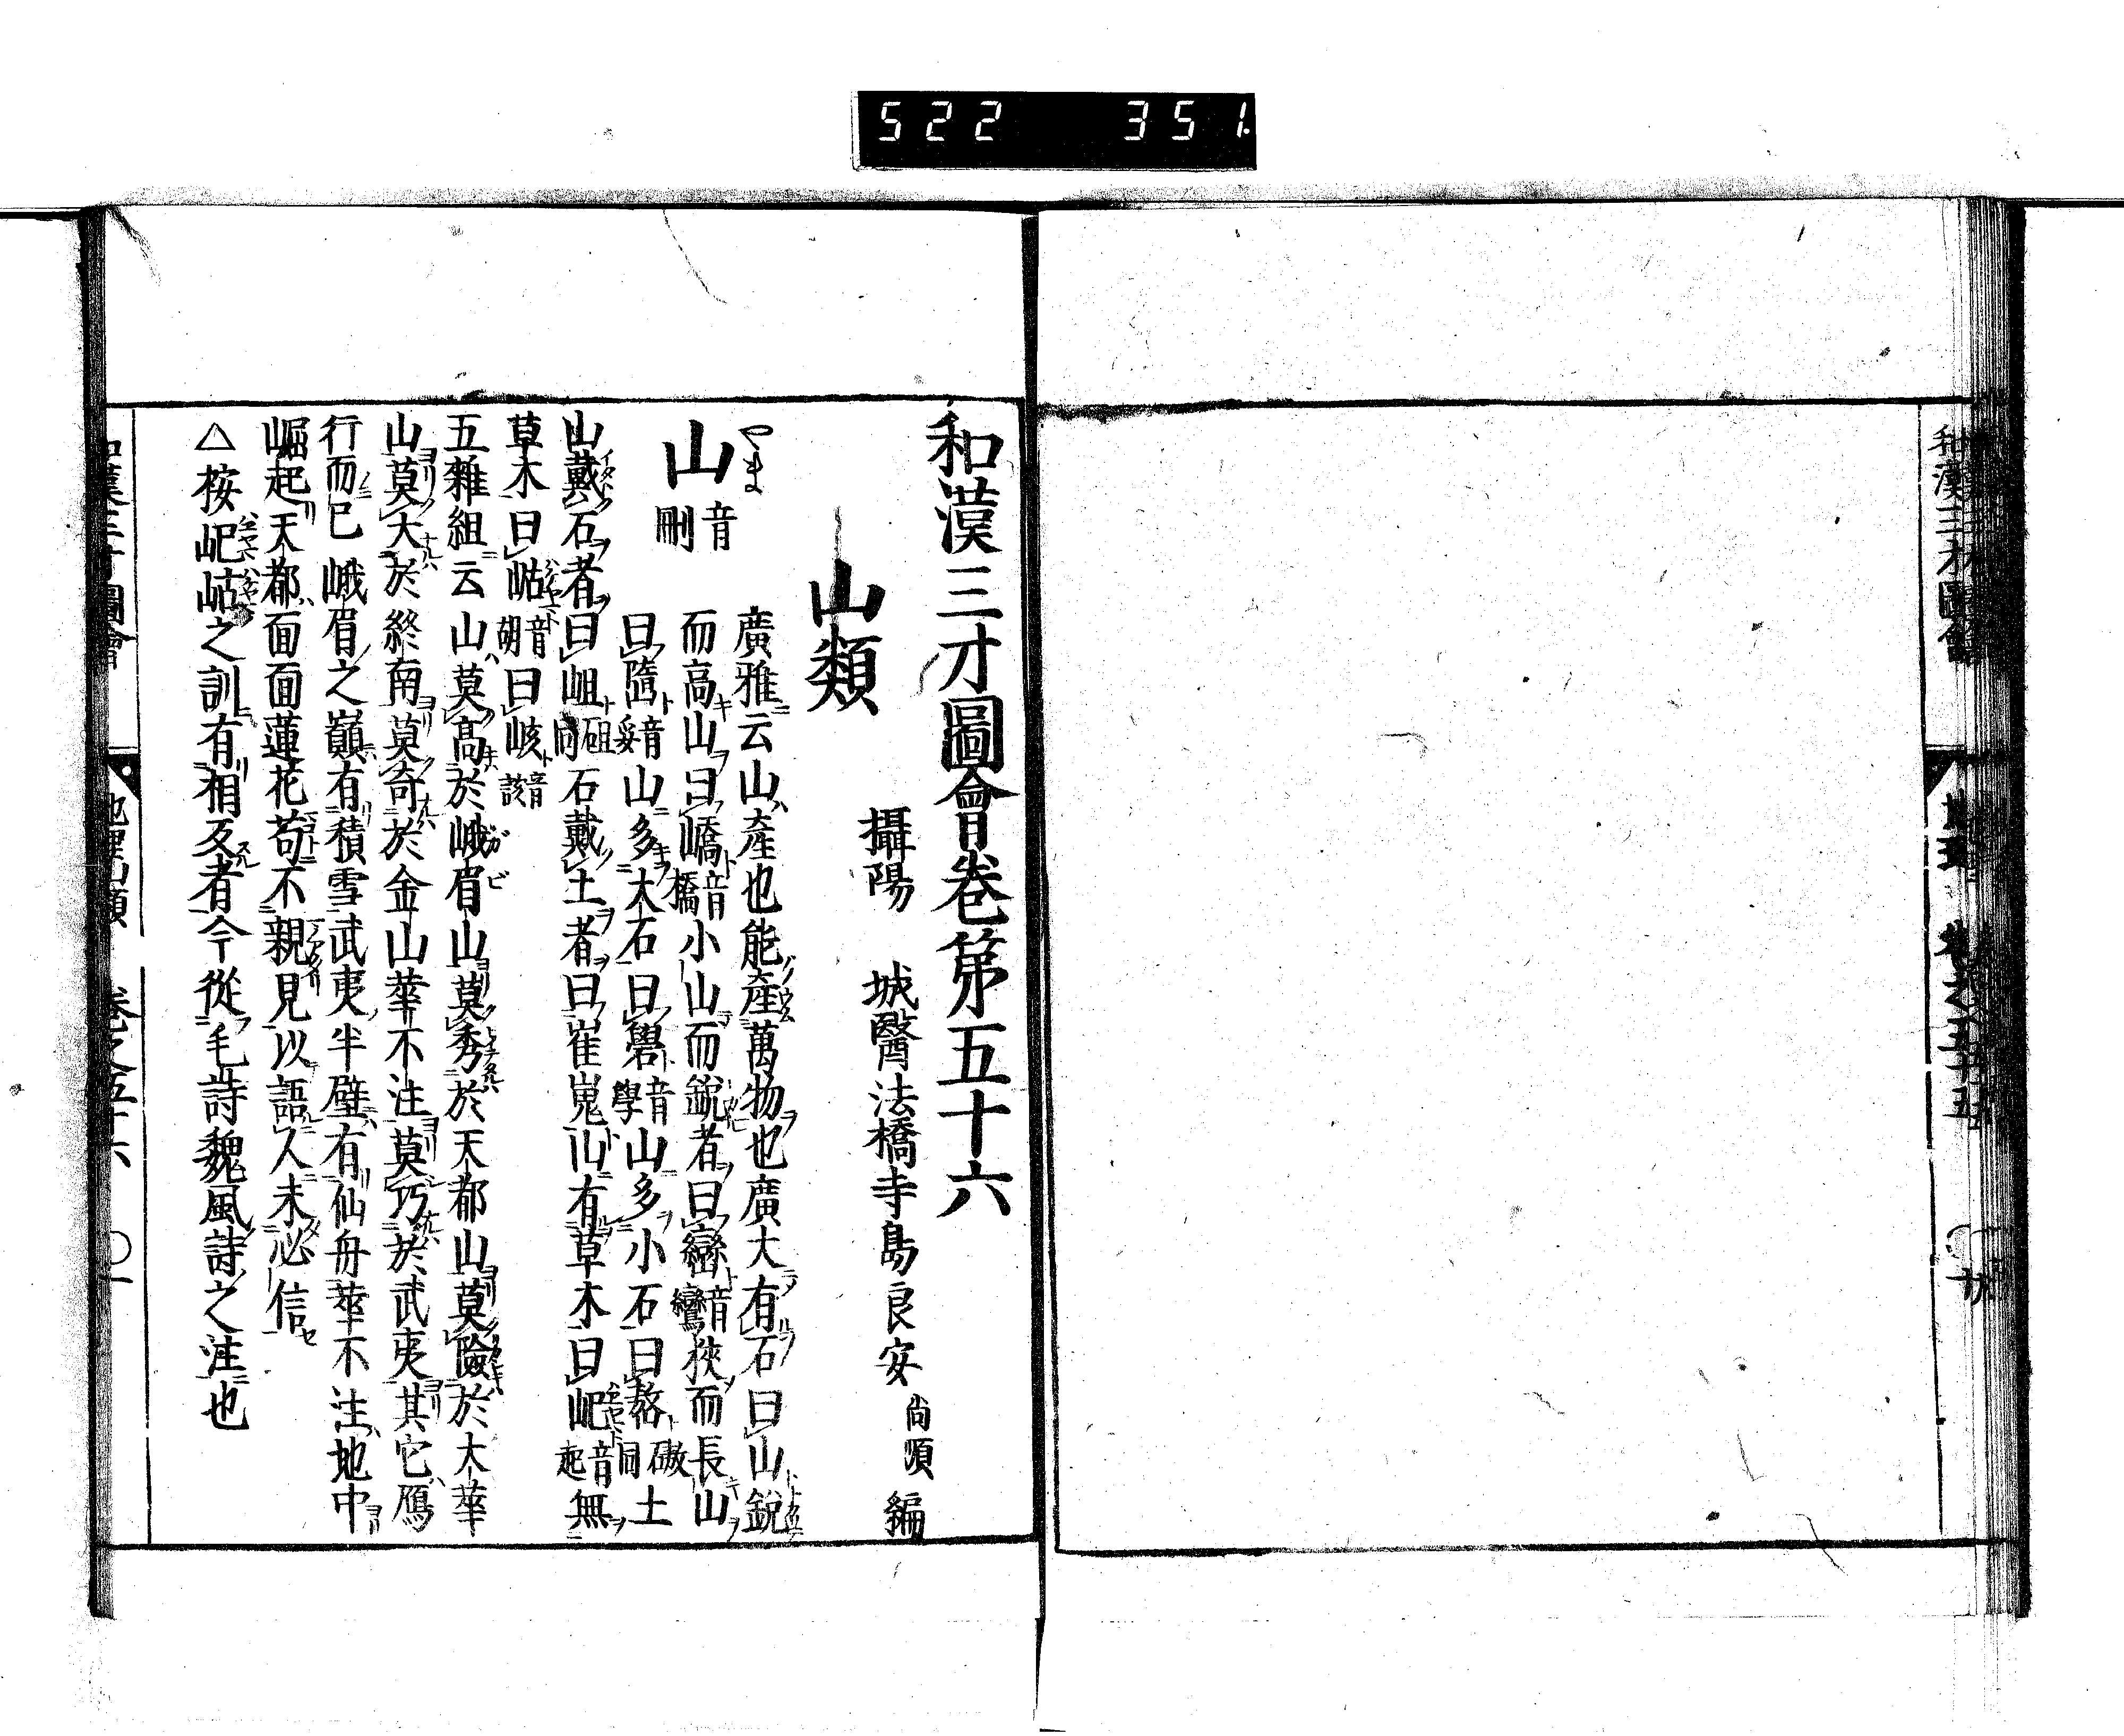 522 351.
和漢三才圖會
卷之五十五
和漢三才圖會卷第五十六
攝陽 城醫法橋寺島良安尚順編
山類
やま
山 音刪
廣雅云山產也能產萬物也廣大有石曰山銳
而高山曰嶠音橋小山而銳者曰巒音鸞狹而長山
曰隋音妥山多大石曰礐音學山多小石曰磝磝同土
山戴石者曰岨砠同石戴土者曰崔嵬山有草木曰屺音起無
草木曰岵音胡曰峐音該
五雜組云山莫高於峨眉山莫秀於天都山莫險於大華
山莫大於終南莫奇於金山華不注莫巧於武夷其它鴈
行而已峨眉之巔有積雪武夷半壁有仙舟華不注地中
崛起天都面面蓮花苟不親見以語人未必信
△按屺岵之訓有相反者今從毛詩魏風詩之注也
和漢三才圖會
地理山類
卷之五十六
〇一